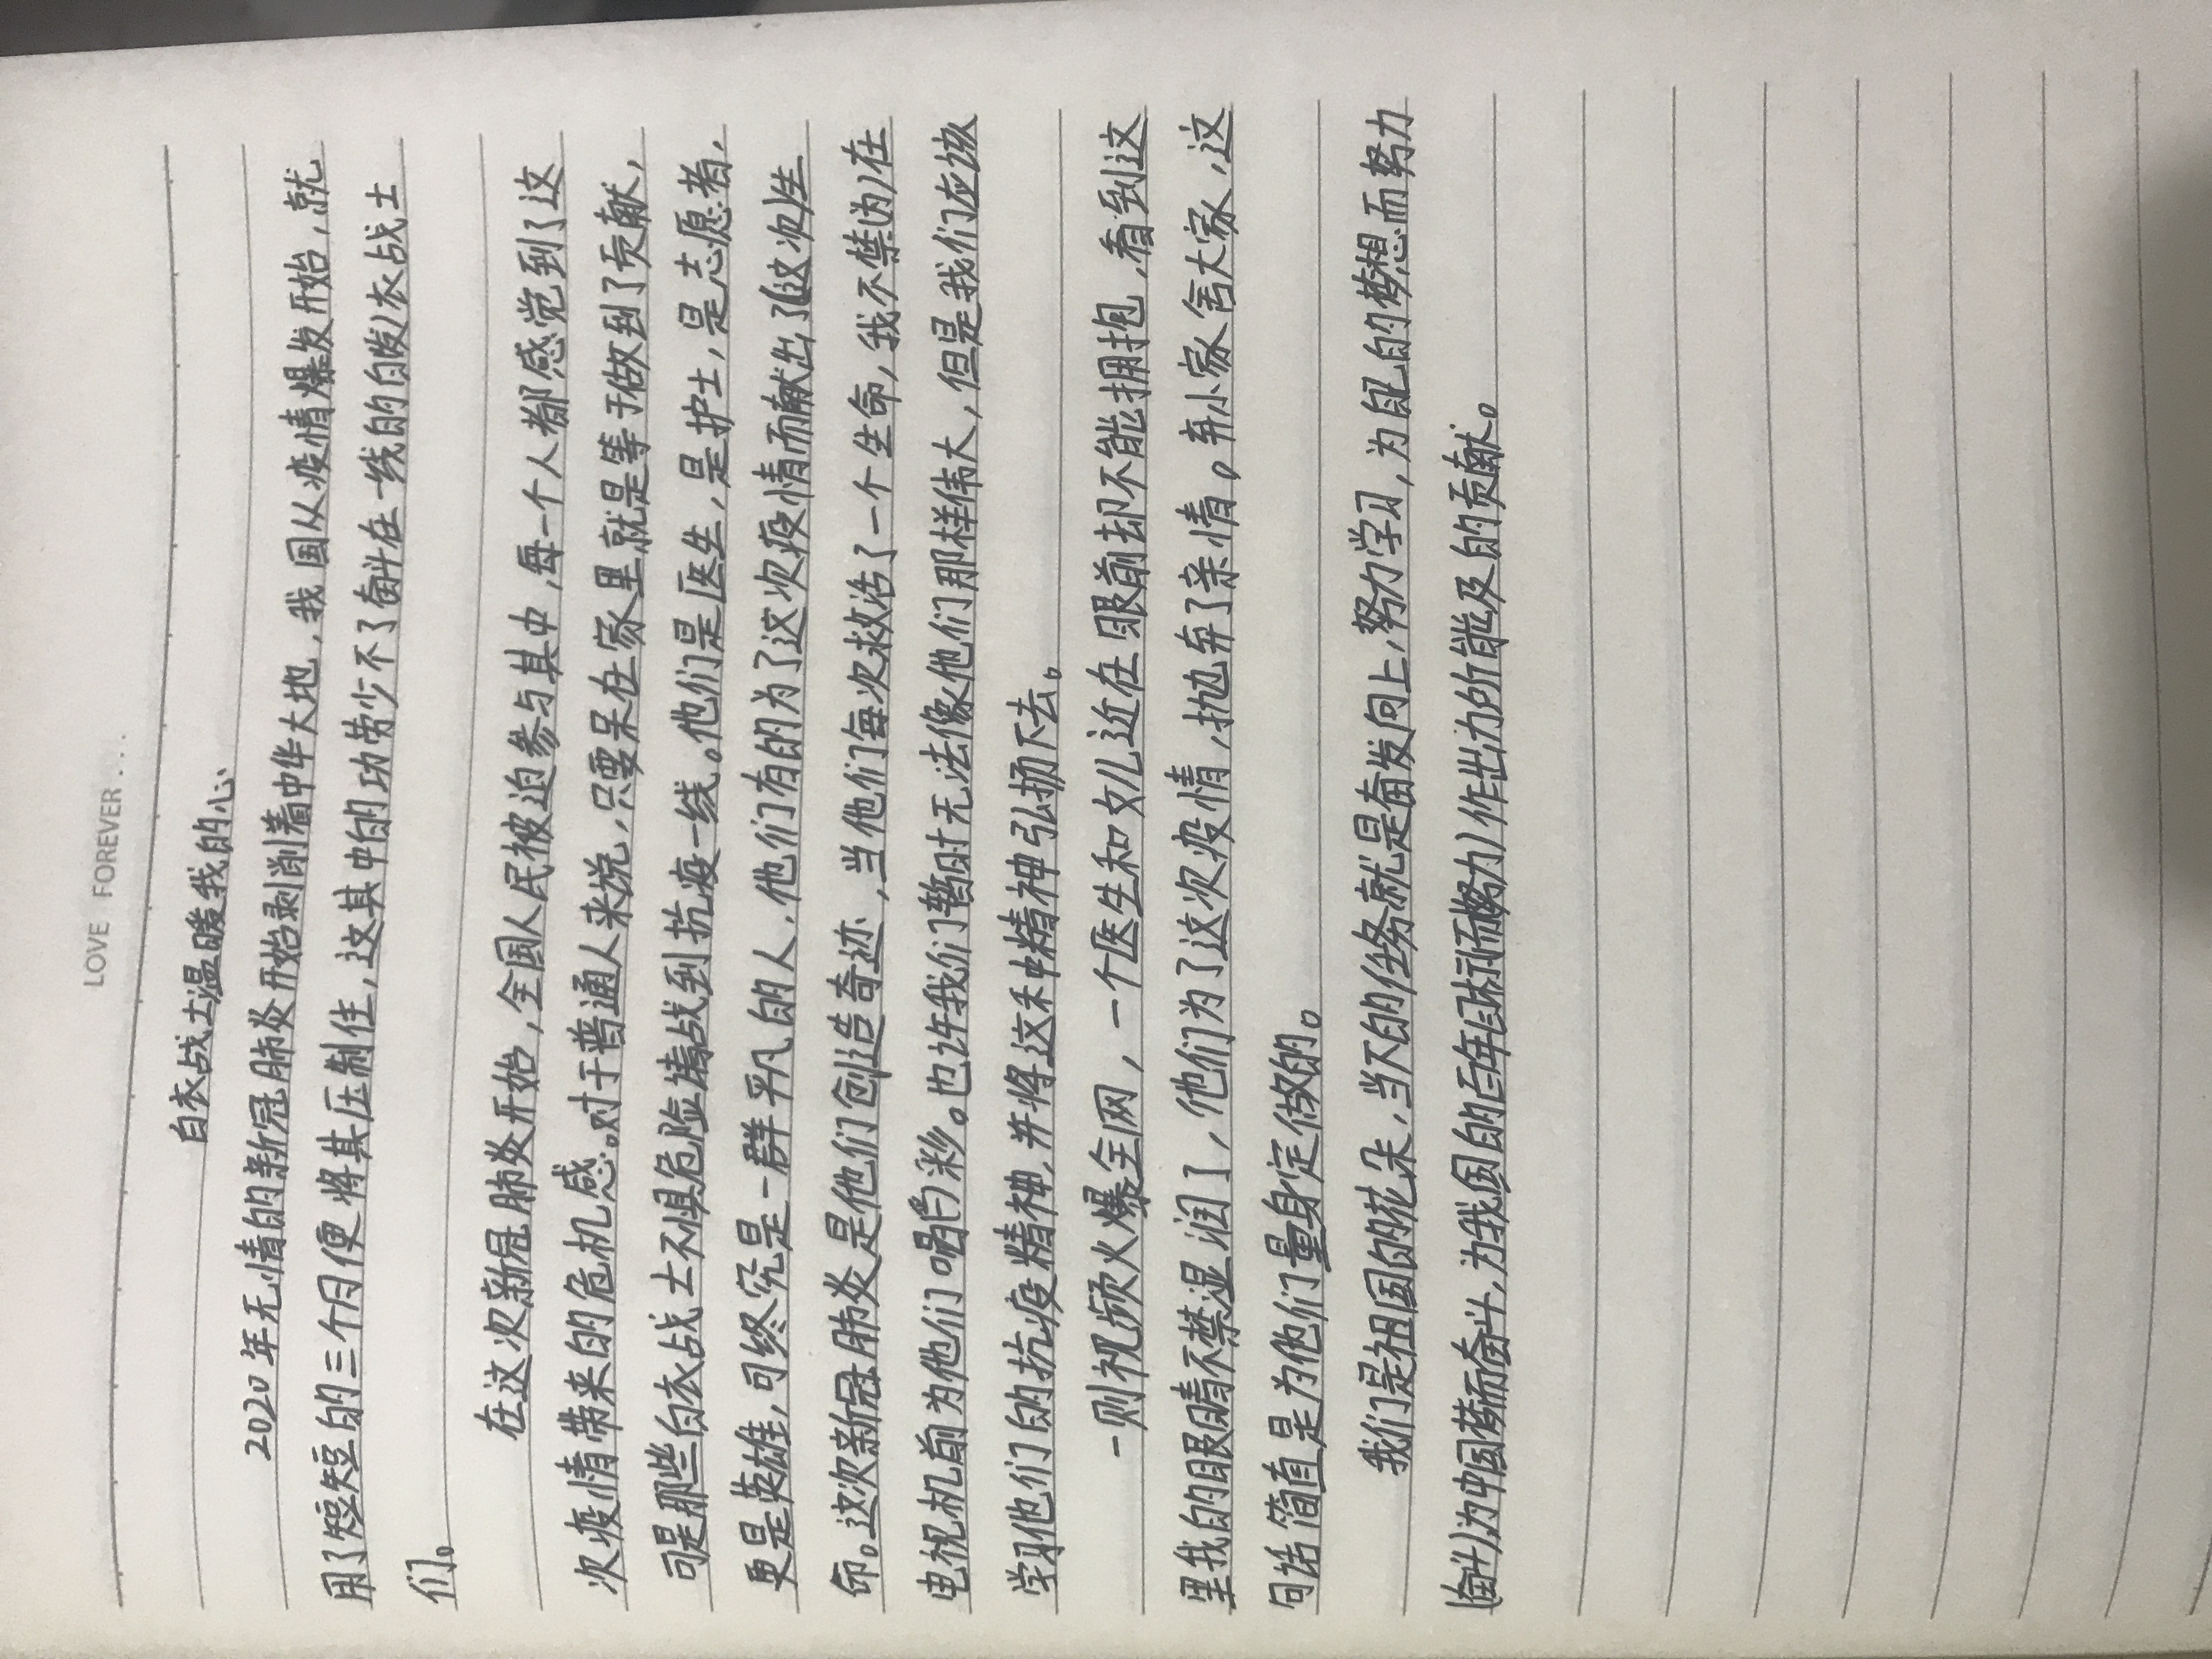 LOVE FOREVER...
白衣战士温暖我的心
2020年无情的新冠肺炎开始剥削着中华大地，我国从疫情爆发开始，就
用了短短的三个月便将其压制住，这其中的功劳少不了奋斗在一线的白衣战士
们。
在这次新冠肺炎开始，全国人民被迫参与其中，每一个人都感觉到了这
次疫情带来的危机感。对于普通人来说，只要呆在家里就是等于做到了贡献，
可是那些白衣战士不惧危险奋战到抗疫一线。他们是医生，是护士，是志愿者，
更是英雄，可终究是一群平凡的人，他们有的为了这次疫情而献出了这次生
命。这次新冠肺炎是他们创造奇迹，当他们每次救活了一个生命，我不禁为在
电视机前为他们喝彩。也许我们暂时无法像他们那样伟大，但是我们应该
学习他们的抗疫精神，并将这种精神弘扬下去。
一则视频火爆全网，一个医生和女儿近在眼前却不能拥抱，看到这
里我的眼睛不禁湿润了，他们为了这次疫情，抛弃了亲情。弃小家舍大家，这
句话简直是为他们量身定做的。
我们是祖国的花朵，当下的任务就是奋发向上，努力学习，为自己的梦想而努力
奋斗，为中国梦而奋斗，为我国的百年目标而努力，作出力所能及的贡献。